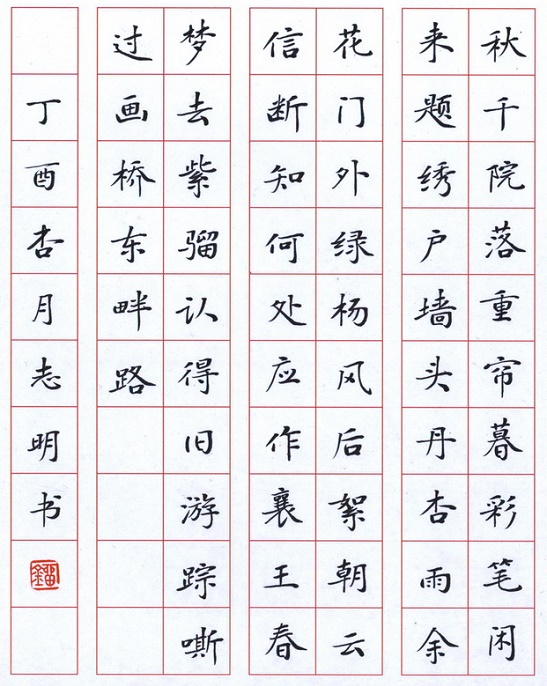 秋千院落重帘暮彩笔闲
来题绣户墙头丹杏雨余
花门外绿杨风后絮朝云
信断知何处应作襄王春
梦去紫骝认得旧游踪嘶
过画桥东畔路
丁酉杏月志明书